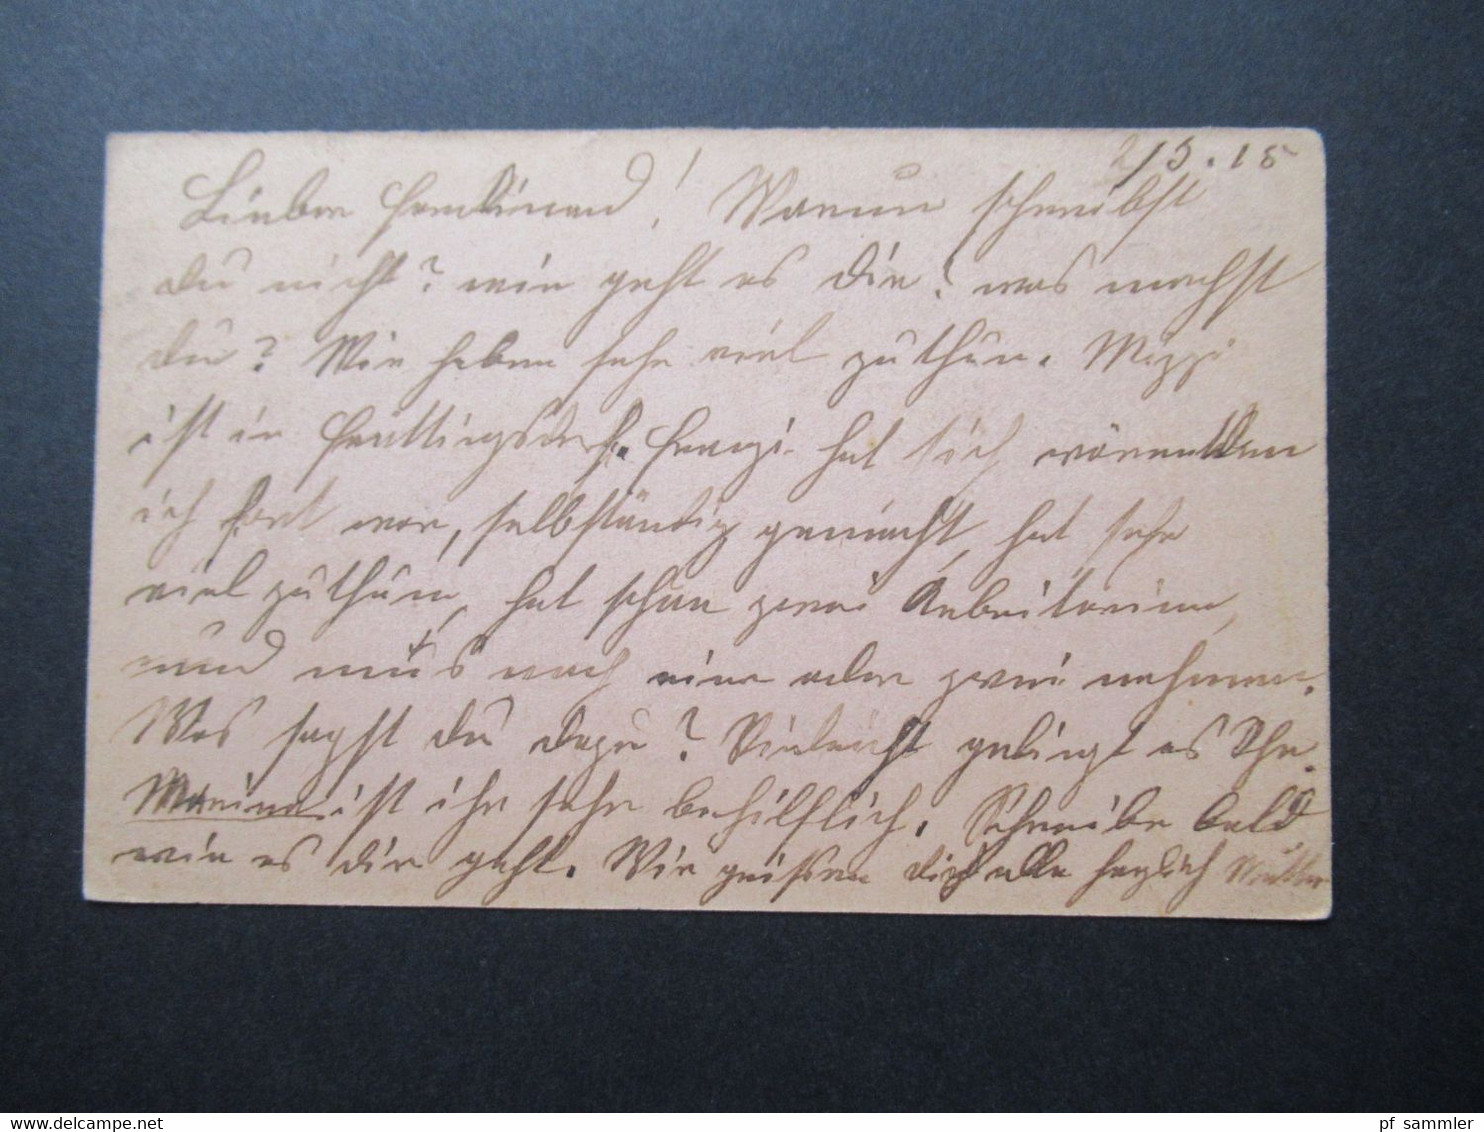 2/5.15
Lieber Ferdinand! Warum schreibst
du nicht? wie geht es dir? was machst
du? Wir haben sehr viel zuthun. Mizzi
ist in Hüttingsdorf. Franzi hat sich wärend
ich fort war, selbständig gemacht, hat sehr
viel zuthun, hat schon zwei Arbeiterinen,
und mus noch eine oder zwei nehmen.
Was sagst du dazu? Vieleicht gelingt es Ihr.
Marina ist ihr sehr behilflich. Schreibe bald
wie es dir geht. Wir grüssen dich alle herzlich Mutter
www.delcampe.net
pf_sammler